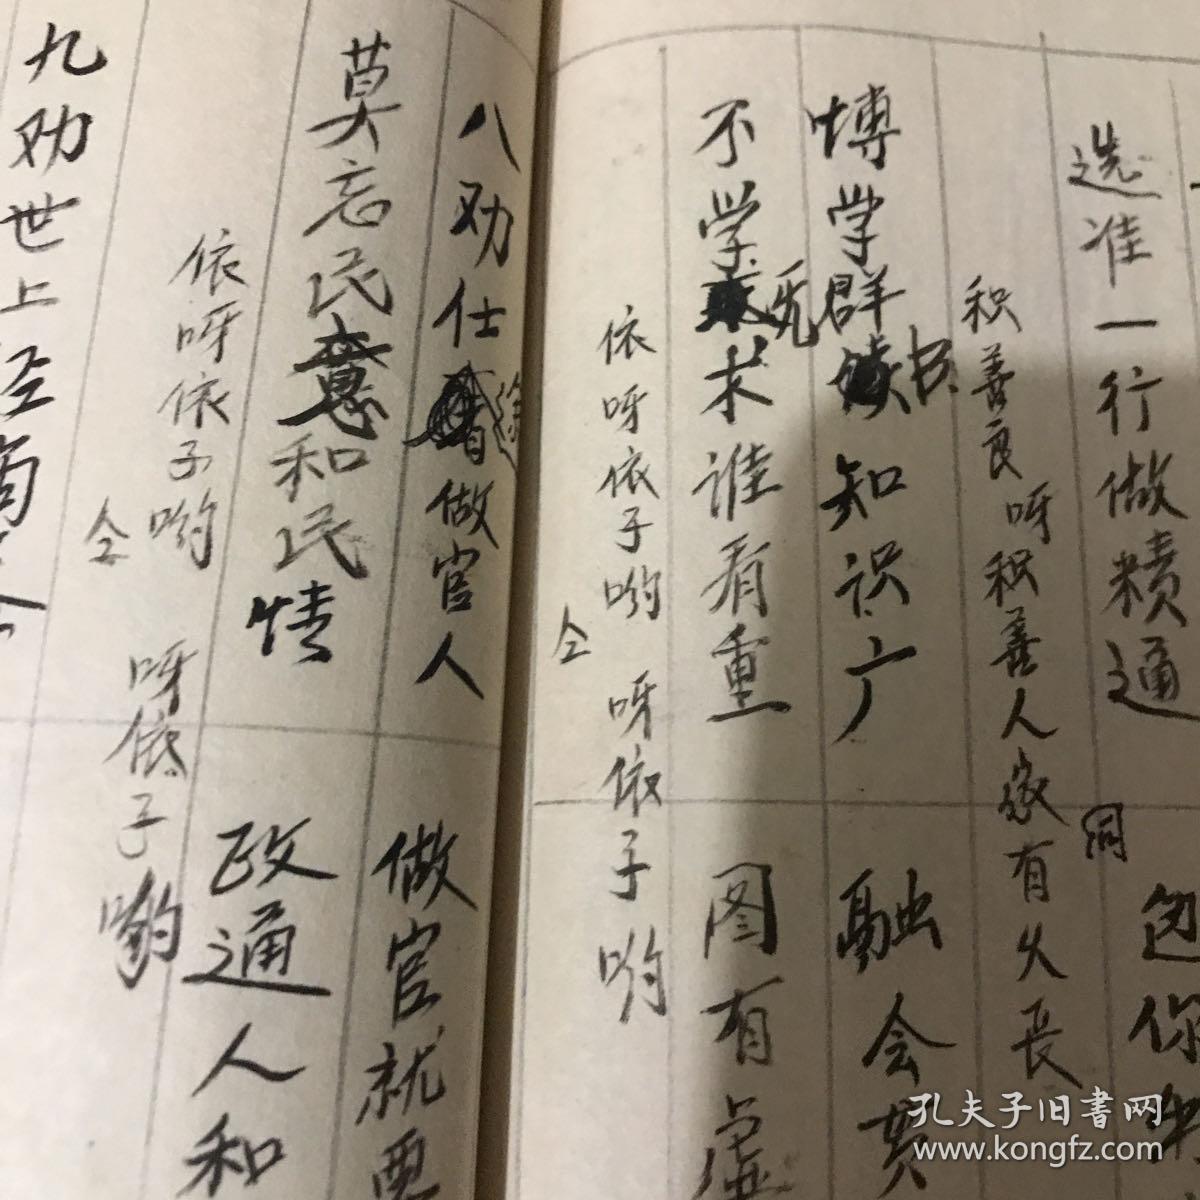 选准一行做精通
包你
积善良呀积善人家有久长
同
博学群书知识广
融会贯
不学无求谁看重
图有虚
依呀依子哟 呀依子哟
仝
八劝仕途做官人
做官就要
莫忘民意和民情
政通人和
依呀依子哟 呀依子哟
仝
九劝世上
孔夫子旧书网
www.kongfz.com